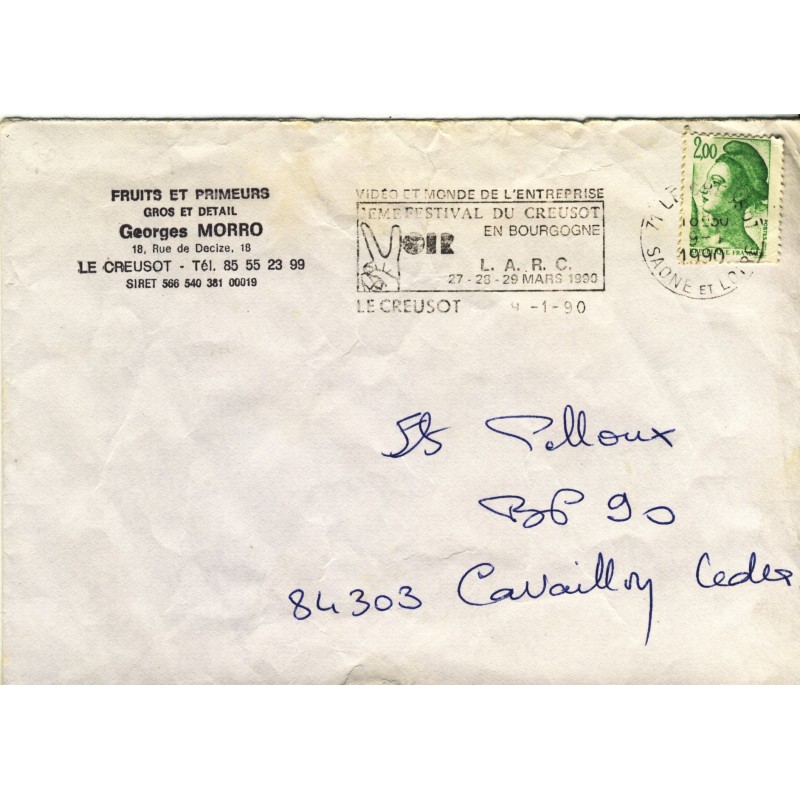 FRUITS ET PRIMEURS
GROS ET DETAIL
Georges MORRO
18, Rue de Decize, 18
LE CREUSOT - Tél. 85 55 23 99
SIRET 566 540 381 00019
VIDÉO ET MONDE DE L'ENTREPRISE
EME FESTIVAL DU CREUSOT
VOIR
EN BOURGOGNE
L. A. R. C.
27 - 28 - 29 MARS 1990
LE CREUSOT 9 -1-90
2,00
71 LE
1990
SAONE ET LOIRE
Ets Pelloux
BP 90
84303 Cavaillon Cedex